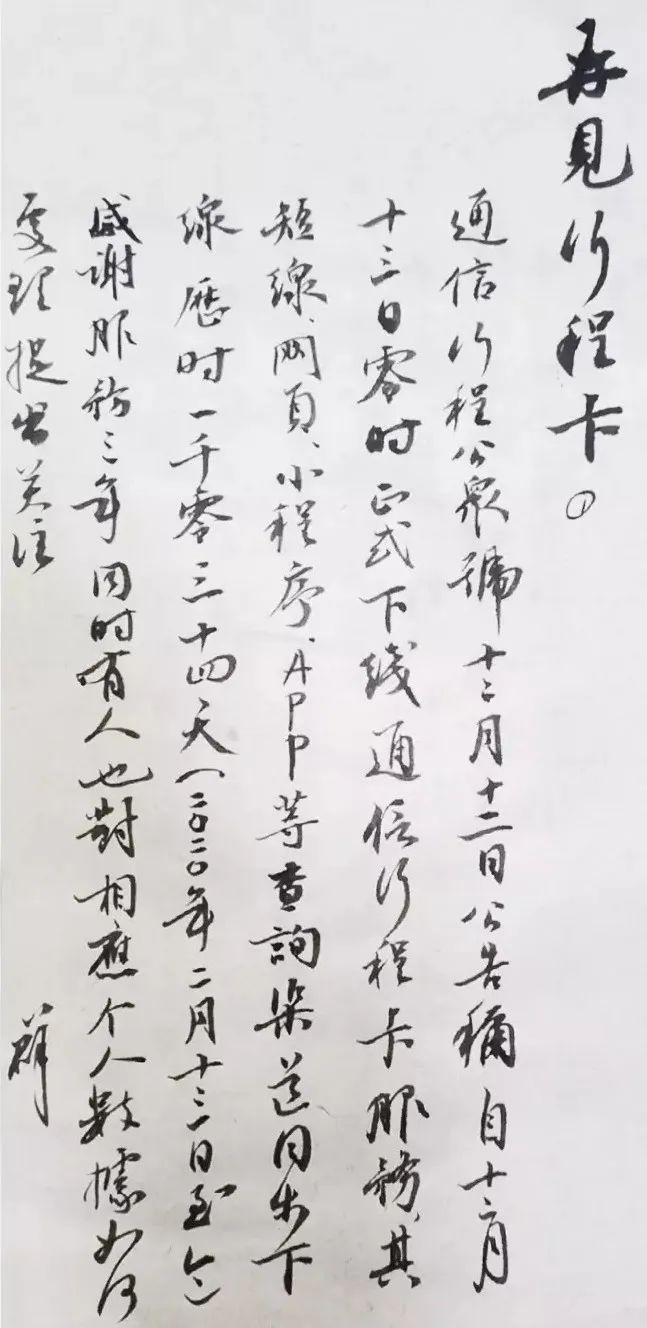 再見行程卡。
通信行程公衆號十二月十二日公告稱自十二月
十三日零时正式下綫通信行程卡服務、其
短線、网頁、小程序、APP等查詢渠道同步下
線歷时一千零三十四天（二〇二〇年二月十三日至今）
感谢服務三年同时有人也對相應个人數據如何
處理提出关注
群